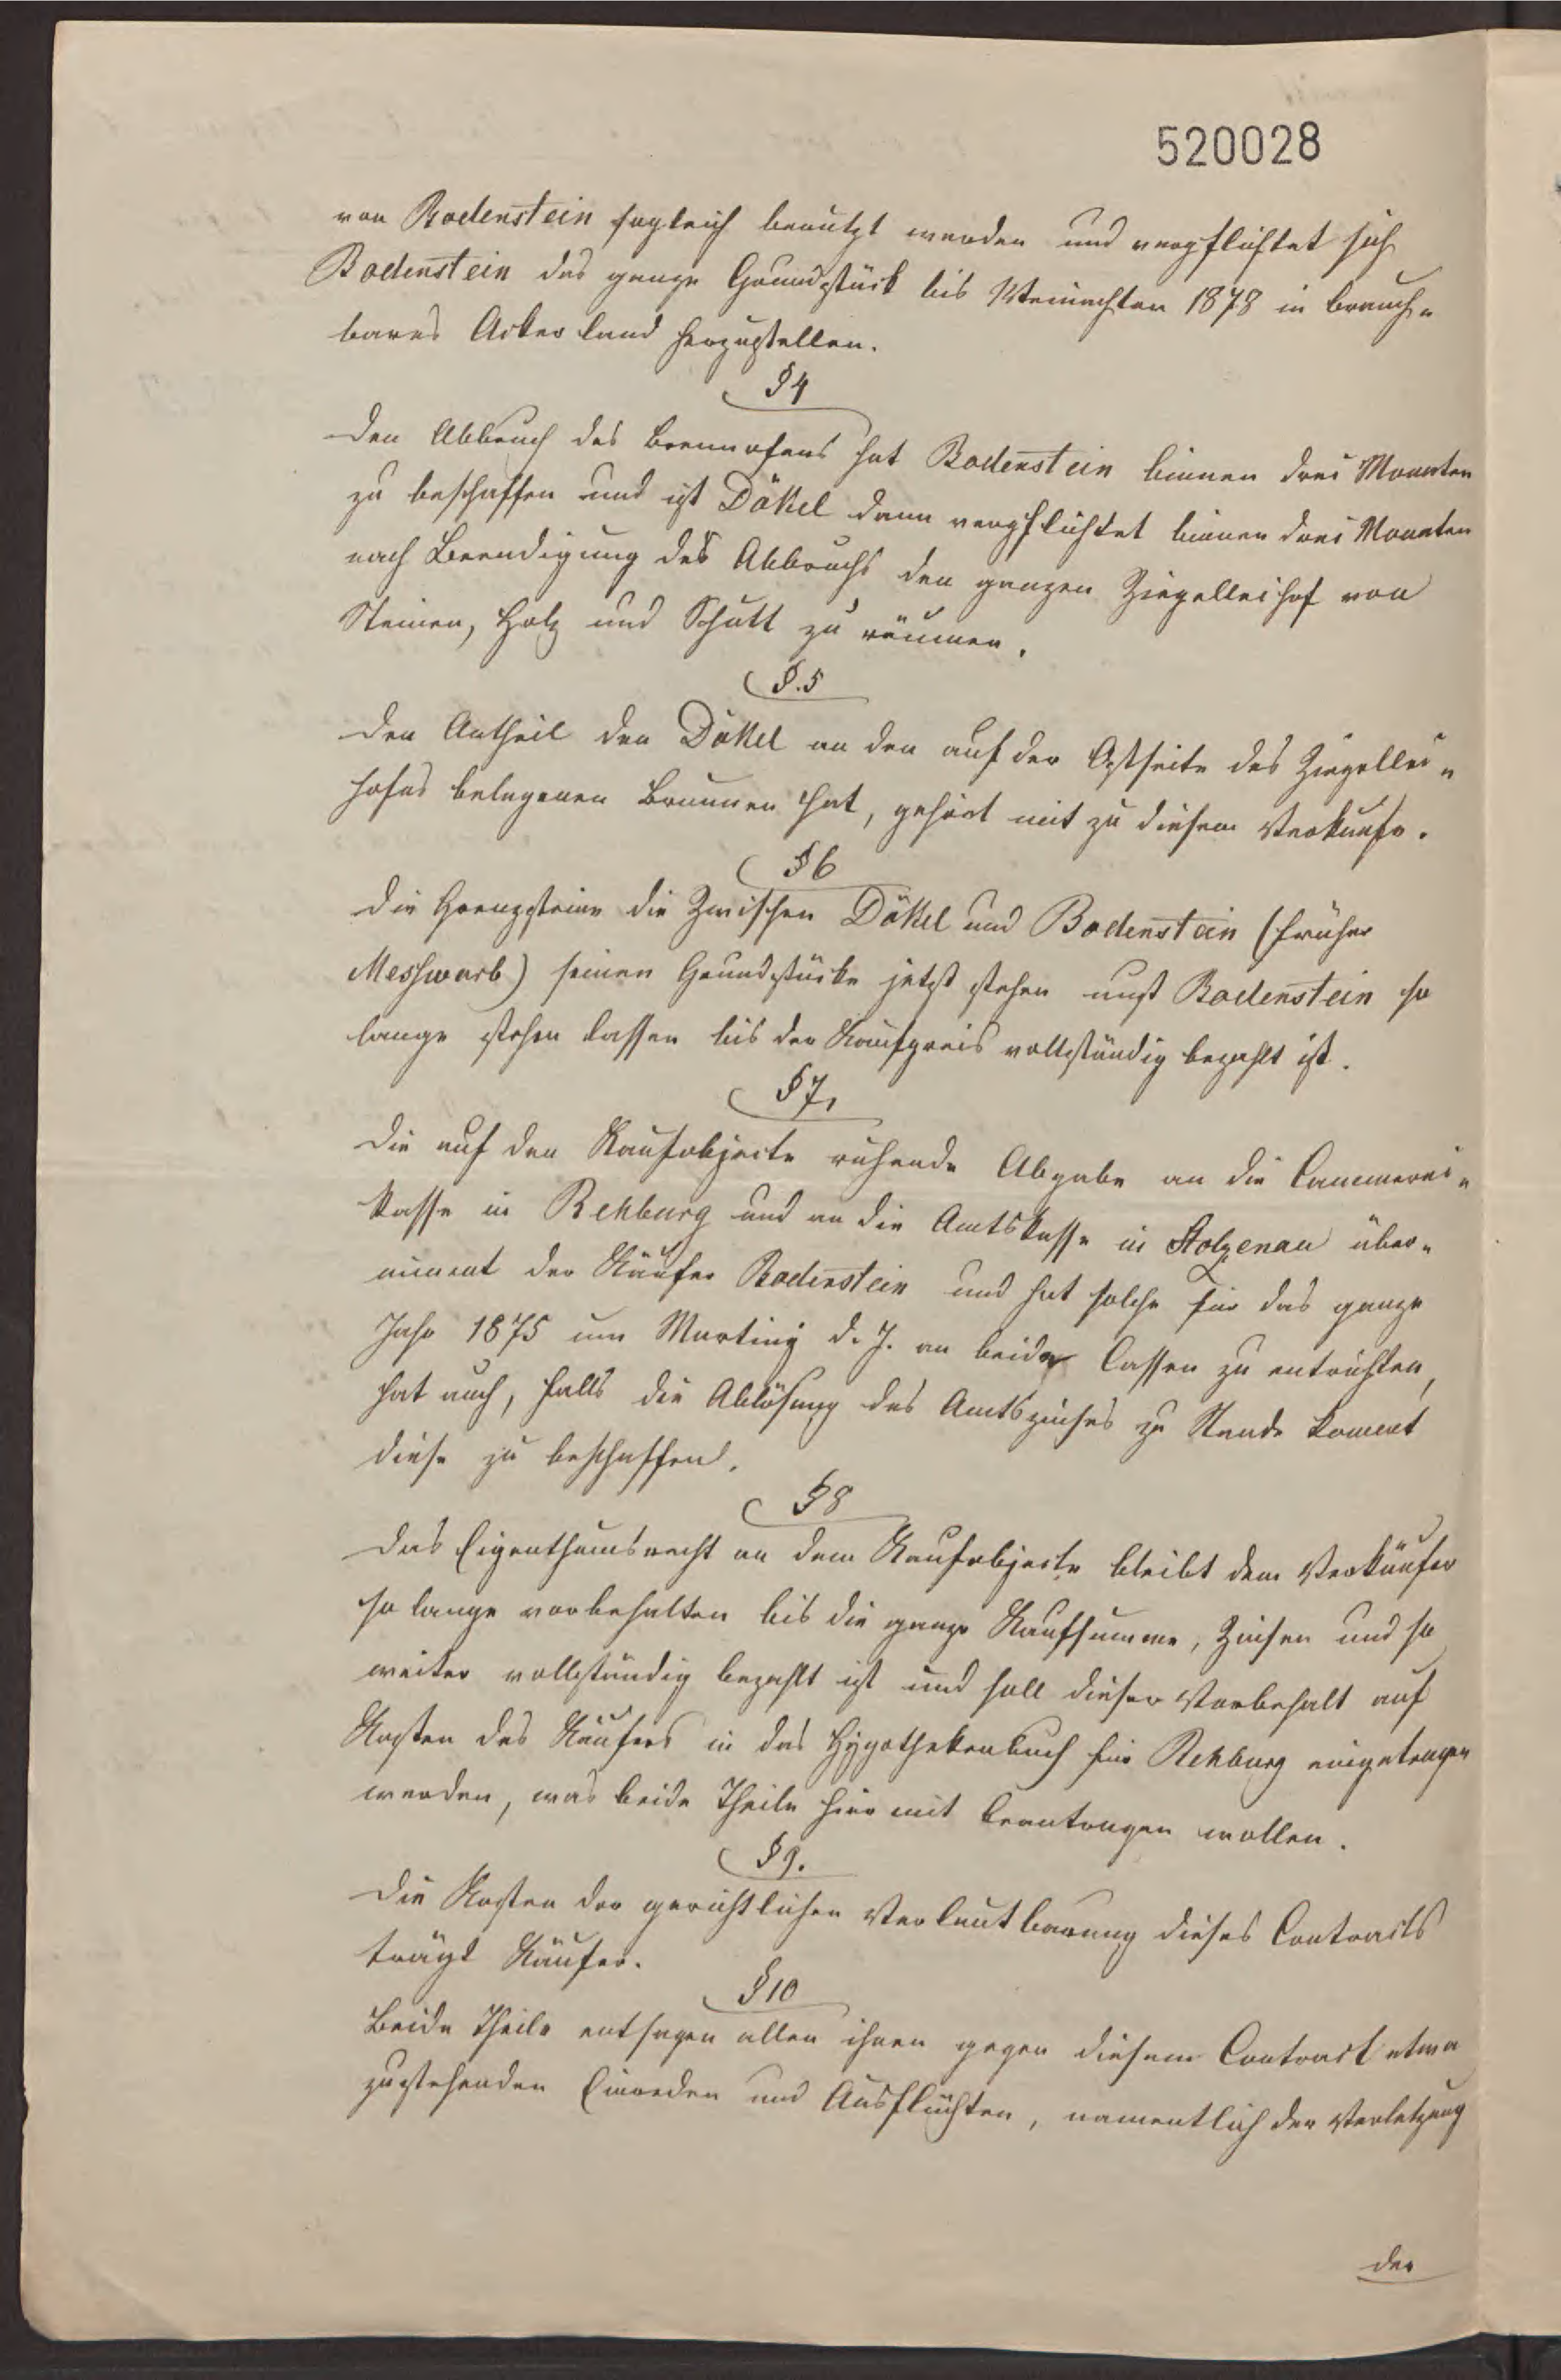 520028
von Bodenstein sogleich benutzt werden und verpflichtet sich
Bodenstein das ganze Grundstück bis Weinachten 1878 in brauch-
bares Ackerland herzustellen.
§4
Den Abbruch des Brennofens hat Bodenstein binnen drei Monaten
zu beschaffen und ist Däkel dann verpflichtet binnen drei Monaten
nach Beendigung des Abbruchs den ganzen Ziegelleihof von
Steinen, Holz und Schutt zu räumen.
§.5
Den Antheil den Däkel an den auf der Ostseite des Ziegellei-
hofes belegenen Brunnen hat, gehört mit zu diesem Verkaufe.
§6
Die Grenzsteine die Zwischen Däkel und Bodenstein (früher
Messwarb) seinen Grundstücke jetzt stehen muß Bodenstein so
lange stehen lassen bis der Kaufpreis vollständig bezahlt ist.
§7,
Die auf den Kaufobjecte ruhende Abgabe an die Cämmerei-
kasse in Rehburg und an die Amtskasse in Stolzenau über-
nimmt der Käufer Bodenstein und hat solche für das ganze
Jahr 1875 um Martiny d. J. an beide Cassen zu entrichten,
hat auch, falls die Ablösung des Amtszinses zu Stande kommt
diese zu beschaffen.
§8
Das Eigenthumsrecht an dem Kaufobjecte bleibt dem Verkäufer
so lange vorbehalten bis die ganze Kaufsumme, Zinsen und so
weiter vollständig bezahlt ist und soll dieser Vorbehalt auf
Kosten des Käufers in das Hypothekenbuch für Rehburg eingetragen
werden, was beide Theile hier mit beantragen wollen.
§9.
Die Kosten der gerichtlichen Verlautbarung dieses Contracts
trägt Käufer.
§10
Beide Theile entsagen allen ihnen gegen diesem Contract etwa
zustehenden Einreden und Ausflüchten, namentlich der Verletzung
der